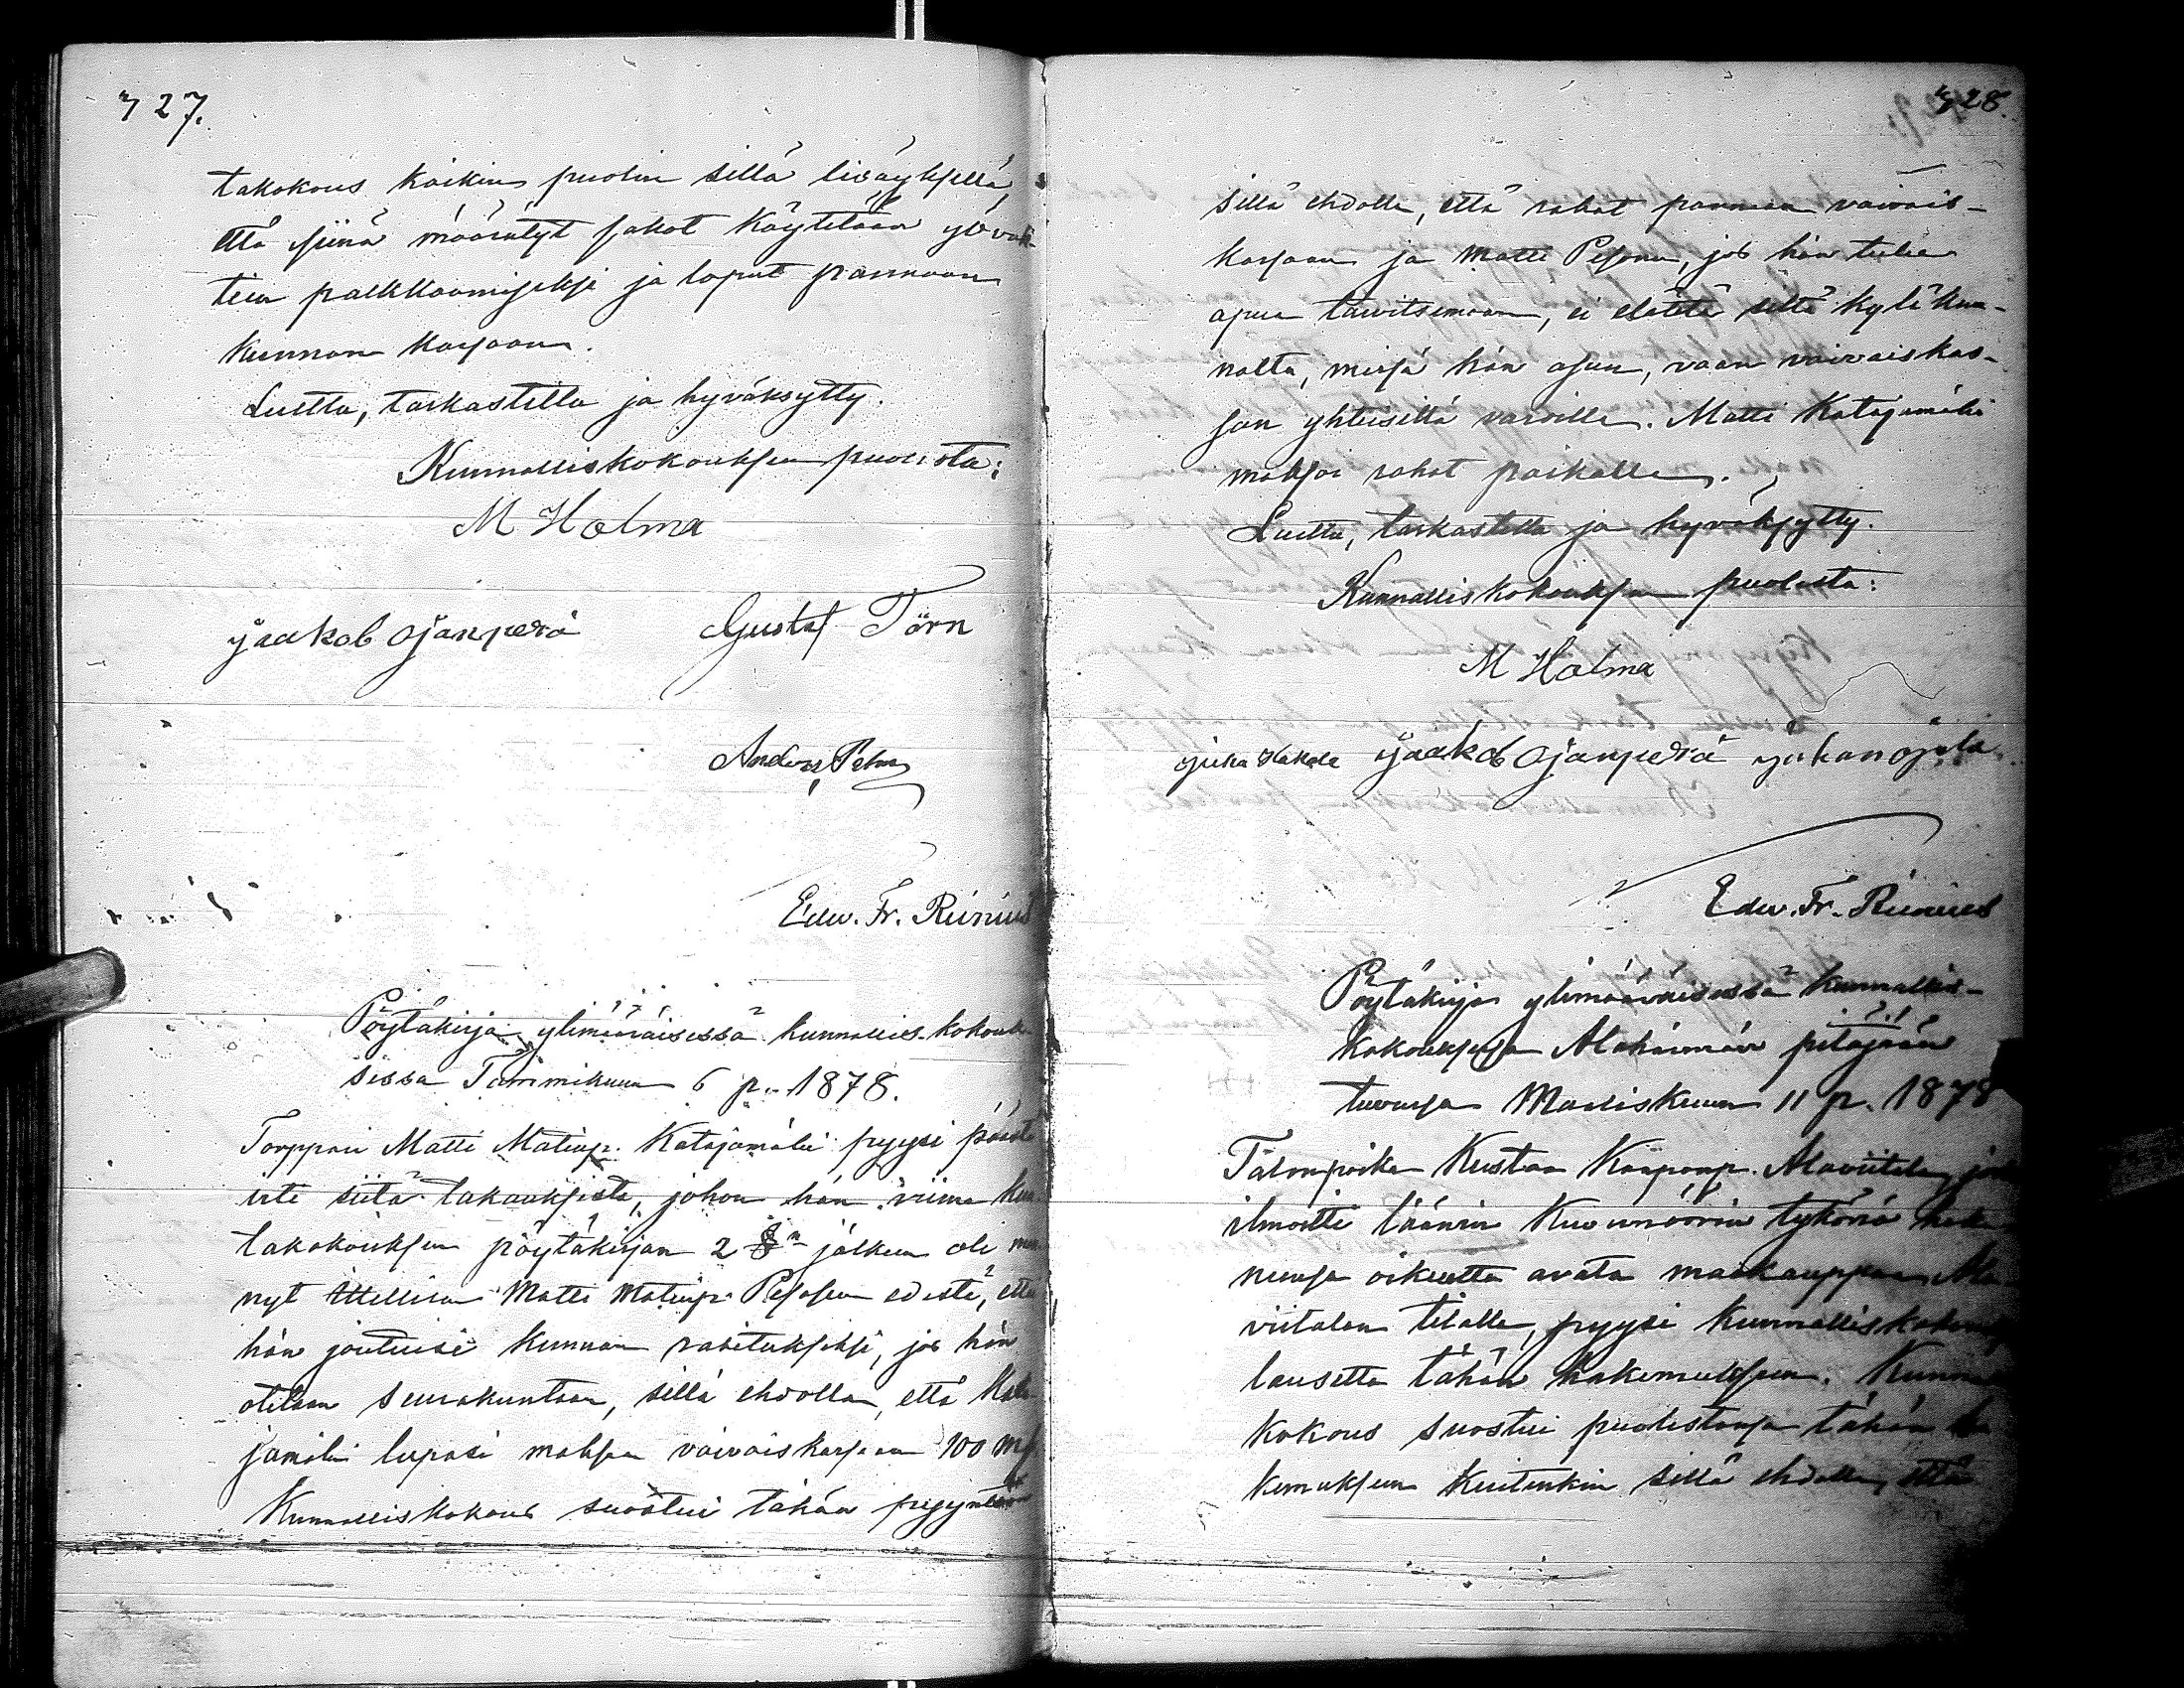 727.
takokous kaikin puolin sillä lisäyksellä,
että siinä määrätyt sakot käytetään
tein palkkaamiseksi ja loput pannaan
kunnan kassaan.
Luettu, tarkastettu ja hyväksytty.
Kunnalliskokouksen puolesta:
M Holma
Jaakob Ojanperä Gustaf Törn
Anders
Edw. Fr. Reinius
Pöytäkirja ylimääräisessä kunnallis-kokouk
sessa Tammikuun 6 p. 1878.
Torppari Matti Matinp. Katajamäki pyysi päästä
irti siitä takauksesta, johon hän viime kun
takokouksen pöytäkirjan 2 §n jälkeen oli men
nyt Itellisen Matti Matinp. Pesosen edestä, että
hän joutuisi kunnan rasitukseksi, jos hän
otetaan seurakuntaan, sillä ehdolla, että Kata
jamäki lupasi maksaa vaivaiskassaan 100 mk
Kunnalliskokous suostui tähän pyyntöön
728.
sillä ehdolla, että rahat pannaan vaivais-
kassaan ja Matti Pesonen, jos hän tulee
apua tarvitsemaan, ei elätetä siltä kyläkun-
nalta, missä hän asuu, vaan vaivaiskas-
san yhteisillä varoilla. Matti Katajamäki
maksoi rahat paikalla.
Luettu, tarkastettu ja hyväksytty.
Kunnalliskokouksen puolesta:
M Holma
Juha Hakola Jaakob Ojanperä Juhan Ojala
Edw. Fr. Reinius
Pöytäkirja ylimääräisessä kunnallis-
kokouksessa Alahärmän pitäjään
tuvassa Maaliskuun 11 p. 1878
Talonpoika Kustaa Kaaponp. Alaviitala, jo
ilmoitti läänin Kuvernöörin tykönä hake
neensa oikeutta avata maakauppaa Ala
viitalan tilalla, pyysi kunnalliskokouks
lausetta tähän hakemukseen. Kunna
kokous suostui puolestansa tähän ha
kemukseen kuitenkin sillä ehdolla, että